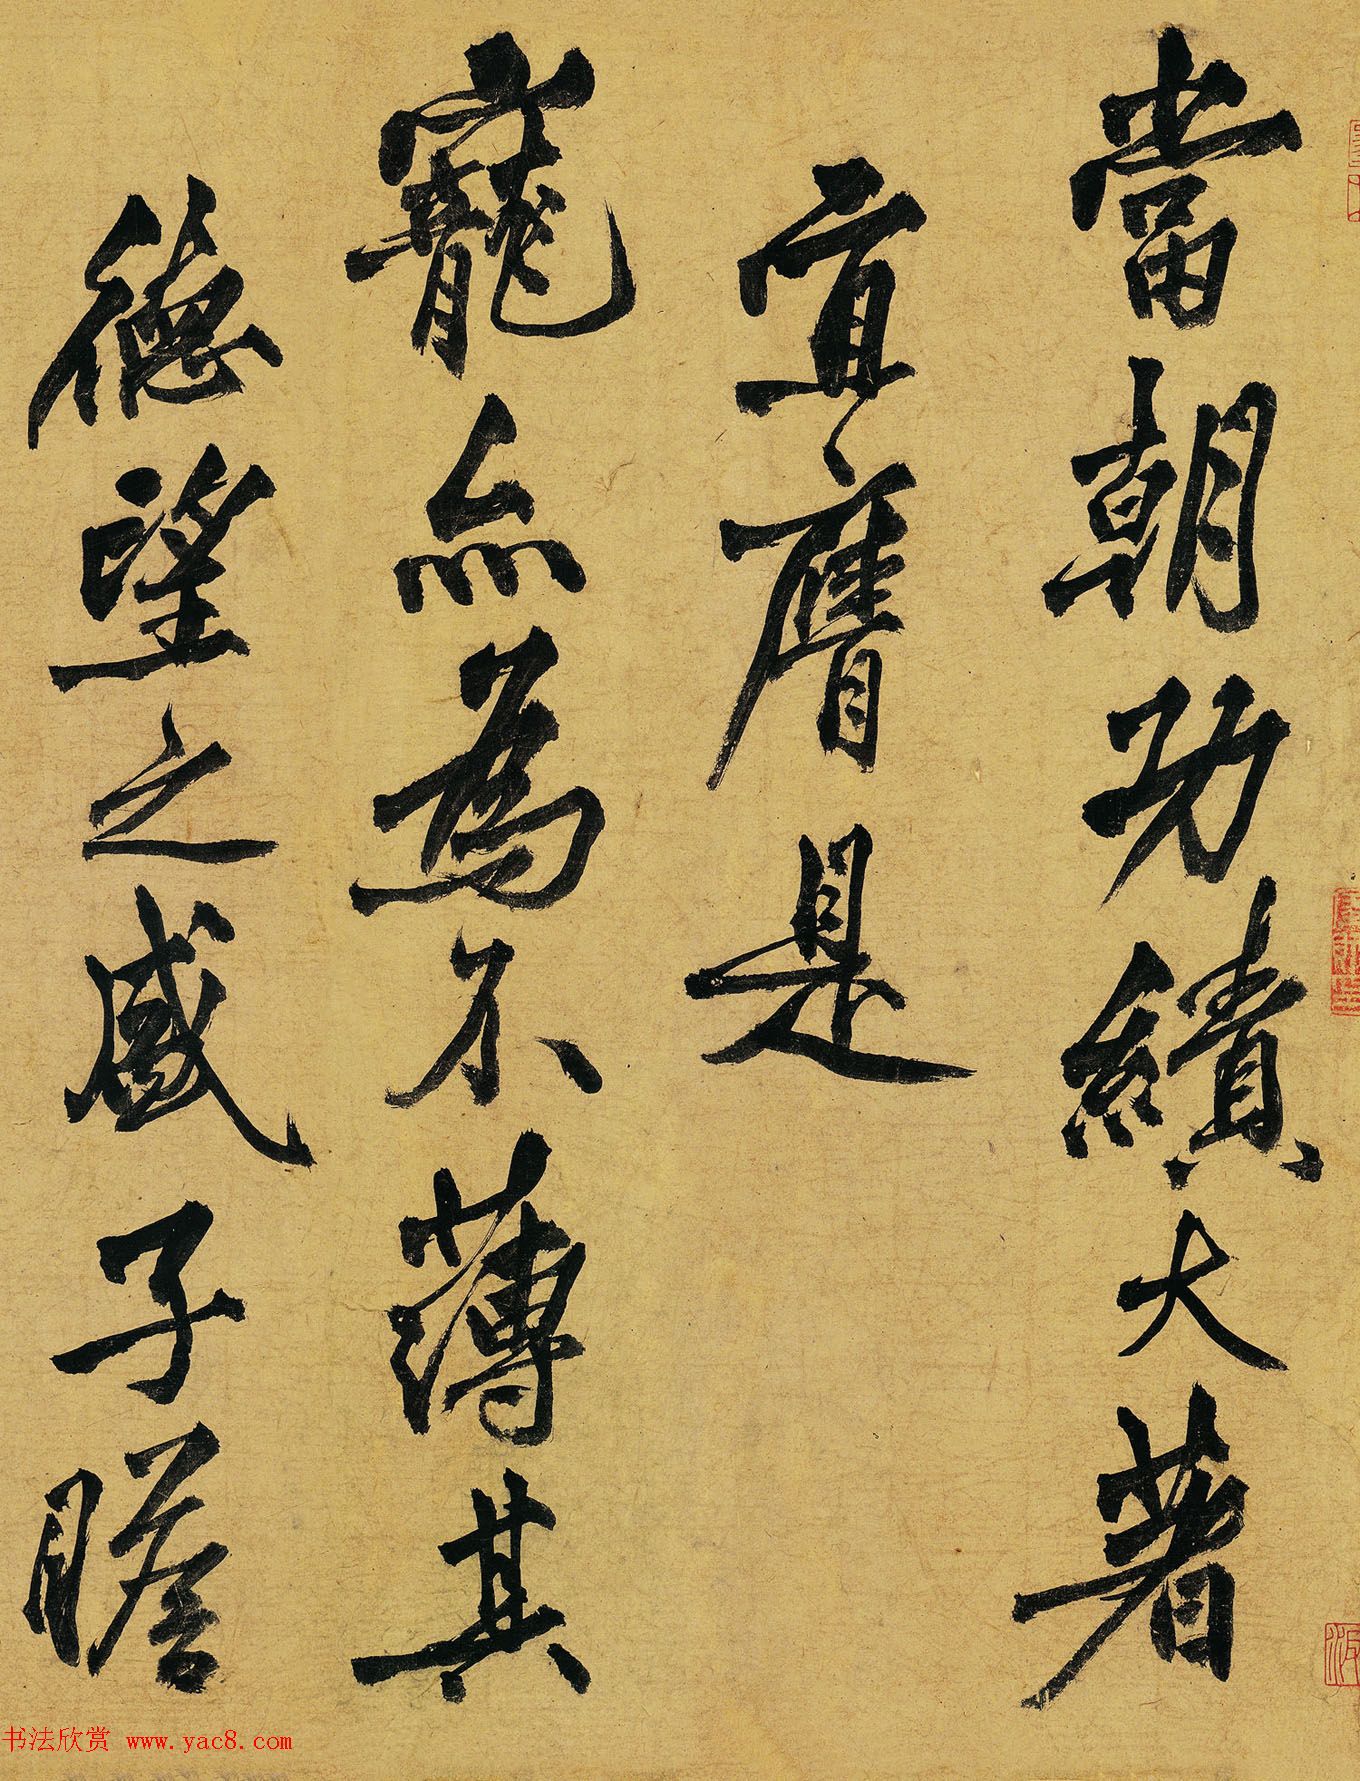 當朝功績大著
宜膺是
寵亦為不薄其
德望之盛子瞻
书法欣赏 www.yac8.com